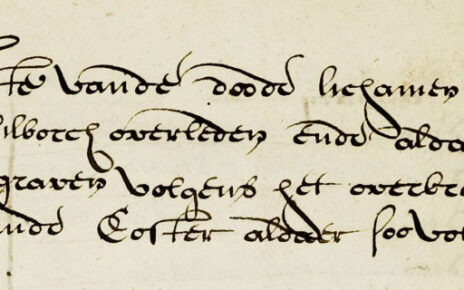 ste vande doode lichamen
ilborch overleden ende aldae
graven volgens het overbre
ande Coster aldaer soevo